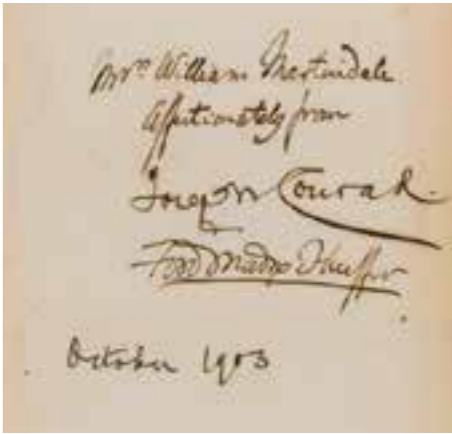 Mrs William Martindale
Affectionately from
Joseph Conrad.
Ford Madox Hueffer
October 1903